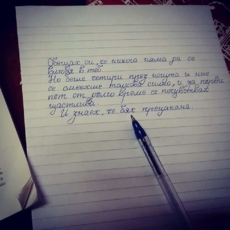 Обещах си, че никога няма да се
влюбя в теб.
Но беше четири през нощта и ние
се смеехме толкова силно, и за първи
път от много време се почувствах
щастлива.
И знаех, че бях прецакана.